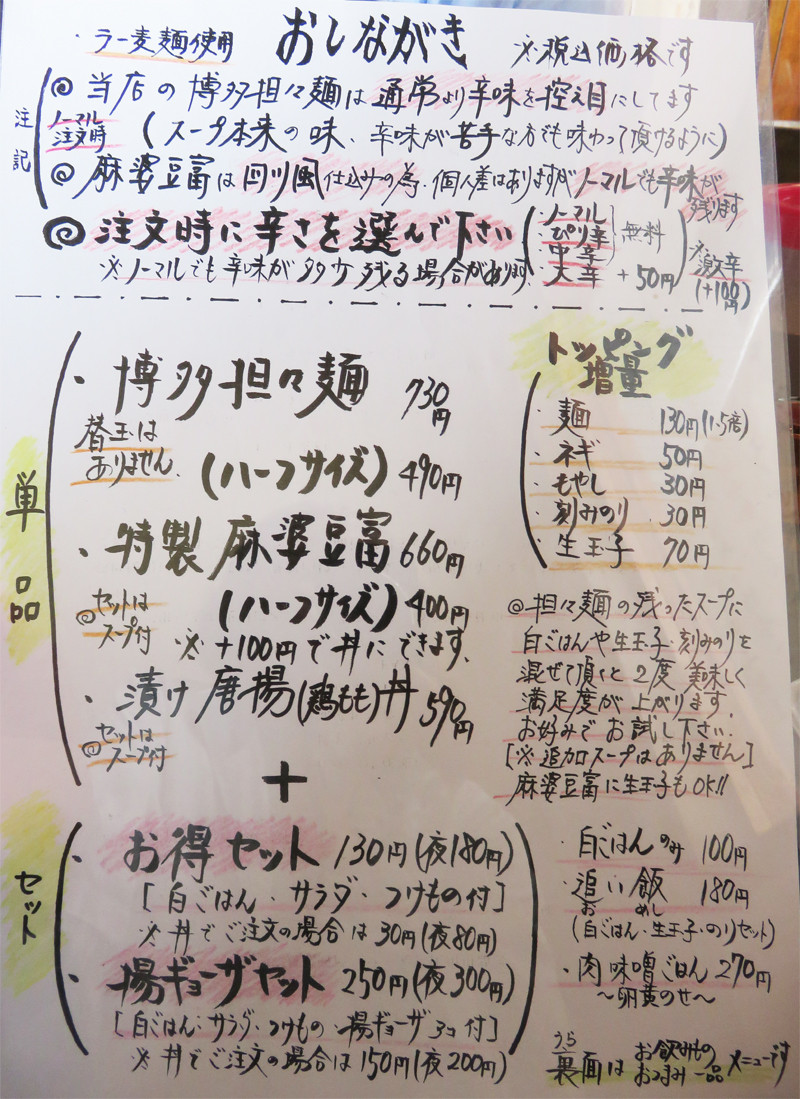 ・ラー麦麺使用
おしながき
※税込価格です
注記
◎当店の博多担々麺は通常より辛味を控え目にしてます
ノーマル注文時
(スープ本来の味、辛味が苦手な方でも味わって頂けるように)
◎麻婆豆富は四川風仕込みの為、個人差はありますがノーマルでも辛味が残ります
◎注文時に辛さを選んで下さい
※ノーマルでも辛味が多少残る場合があります
・ノーマル
・ぴり辛
・中辛
無料
・大辛 +50円
※激辛(+100円)
単品
・博多担々麺 730円
替玉はありません
(ハーフサイズ) 490円
・特製麻婆豆富 660円
◎セットはスープ付
(ハーフサイズ) 400円
※+100円で丼にできます。
・漬け唐揚(鶏もも)丼 590円
◎セットはスープ付
+
トッピング増量
・麺 130円(1.5倍)
・ネギ 50円
・もやし 30円
・刻みのり 30円
・生玉子 70円
◎担々麺の残ったスープに
白ごはんや生玉子・刻みのりを
混ぜて頂くと2度美味しく
満足度が上がります。
お好みでお試し下さい。
[※追加スープはありません]
麻婆豆富に生玉子もOK!!
セット
・お得セット 130円(夜180円)
[白ごはん・サラダ・つけもの付]
※丼でご注文の場合は30円(夜80円)
・揚ギョーザセット 250円(夜300円)
[白ごはん・サラダ・つけもの・揚ギョーザ3コ付]
※丼でご注文の場合は150円(夜200円)
・白ごはんのみ 100円
・追い飯 180円
お めし
(白ごはん・生玉子・のりセット)
・肉味噌ごはん 270円
〜卵黄のせ〜
うら
裏面は お飲みもの おつまみ一品 メニューです